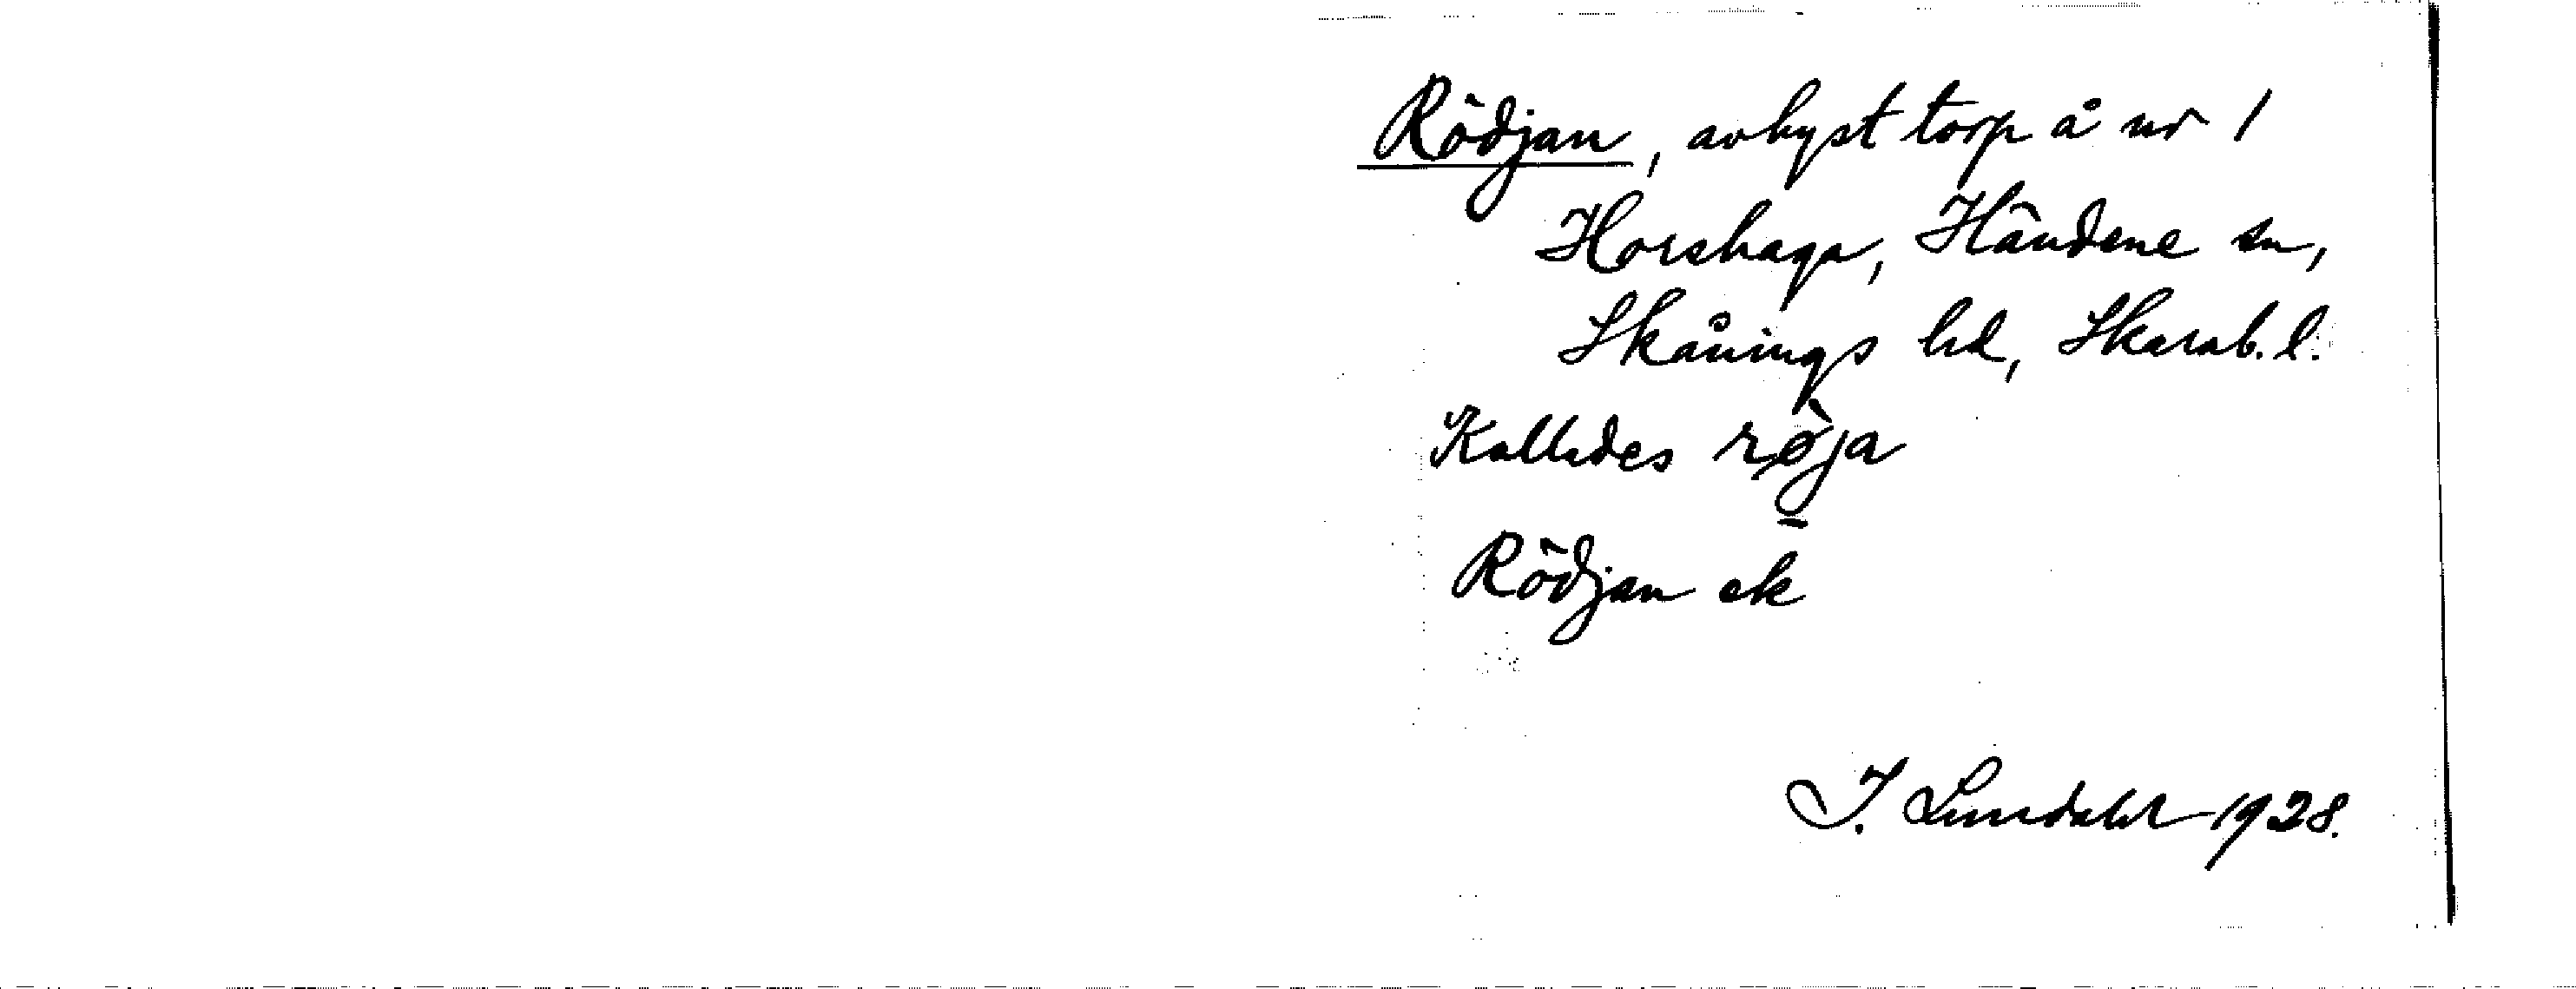 Rödjan, avhyst torp å nr 1
Horshaga, Händene sn,
Skånings hd, Skarab. l.
Kallades rö̀ja
Rödjan ek
I. Lundahl 1928.